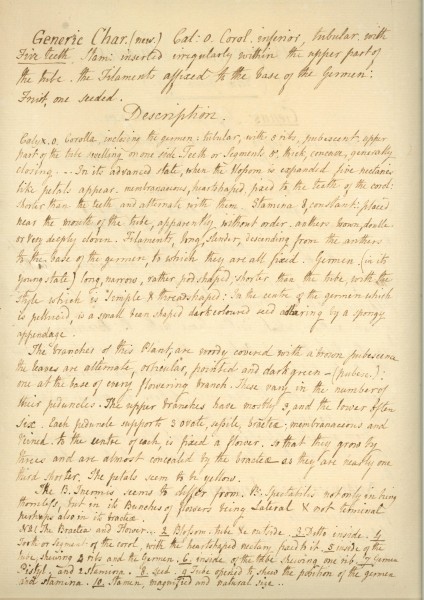 Generic Char. (new.) Cal: 0. Corol. inferior, tubular with
Five teeth. Stam: inserted irregularly within the upper part of
the tube. the Filaments affixed to the base of the Germen:
Fruit one seeded.
Description.
Calyx. 0. Corolla, inclosing the germen: tubular, with 5 ribs, pubescent: upper
part of the tube swelling on one side. Teeth or Segments thick, concave, generally
closing. In its advanced state, when the blosom is expanded five nectaries
like petals appear. membranaceous, heartshaped, fixed to the teeth of the corol:
shorter than the teeth and alternate with them. Stamina 8, constant: placed
near the mouth of the tube, apparently without order. anthers brown, double
or very deeply cloven. Filaments, long, slender, descending from the anthers
to the base of the germen, to which they are all fixed. Germen (in its
young state) long, narrow, rather pod shaped; shorter than the tube, with the
Style which is Simple & threadshaped. In the centre of the germen which
is is a small bean shaped dark coloured seed adhering by a spongy
appendage.
The branches of this Plant, are woody covered with a brown pubescence
the leaves are alternate, orbicular, pointed and dark green (puben.):
one at the base of every flowering branch. These vary in the number of
their peduncles. The upper branches have mostly 3, and the lower often
Six. Each peduncle supports 3 ovate, sessile, bractea; membranaceous and
veined. to the centre of each, is fixed a flower. so that they grow by
threes and are almost concealed by the bractea as they are nearly one
third shorter. The petals seem to be yellow.
The B. Inermis seems to differ from B: Spectabilis not only in being
thornless, but in its Bunches of flowers being Lateral & not terminal
perhaps also in its bractea.
NB (The Bractea and Flowers. 2 Blosom: tube & outside. 3 Ditto inside. 4
Tooth or Segment of the corol, with the heartshaped nectary fixed to it. 5 inside of the
tube, shewing 4 ribs and the Germen. 6 inside of the tube shewing one rib. 7 Germen
Pistyl, and 2 Stamina. 8 Seed. 9 Tube opened to shew the position of the germen
and stamina. 10 Stamen magnified and natural size.